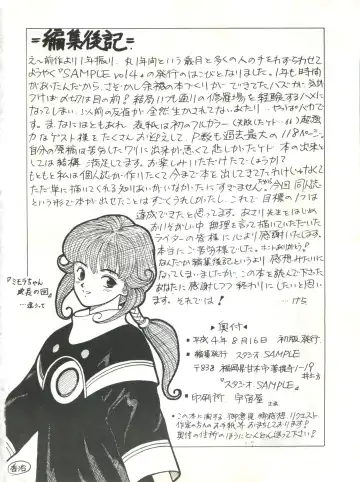 =編集後記=
え〜前作より1年振り、丸1年間という歳月と多くの人の手をわずらわせて
ようやく『SAMPLE vol4』の発行のはこびとなりました。1年も時間
があいたんだから、さぞかし余裕の本づくりが…できてたハズが、気が
つけば〆切は目の前？結局いつも通りの修羅場を経験するハメに
なってしまい、以前の反省が全然生かされてないあたり…やっぱバカで
す。ま、なにはともあれ、表紙は初のフルカラー（失敗したケド…）超強
力なゲスト様をたくさんお迎えして、P数も過去最大の118ページ。
自分の原稿は苦労したワリに出来が悪くて悲しかったケド、本の出来と
しては結構満足してます。お楽しみいただけたでしょうか？
もともと私は個人誌が作りたくて今まで本を出してきたわけじゃなく
ただ単に描いてくれる知りあいがいなかただけです。すみません。今回同人誌
という形で本が出せたことはすごくうれしかたし、これで1つ目標の1つは
達成できたと思ってます。あさり先生をはじめ
おいそがしい中無理を言って描いていただいた
ライターの皆様に心より感謝いたします。
本当にご苦労様でした。ホントありがとう！
なんだか編集後記というより感想みたいに
なってしまいましたが、この本を読んで下さった
あなたに感謝しつつ終わりにしたいと思い
ます。それでは！
『ミモラちゃん
成長の図』
…違うって
▶奥付◀
・平成4年8月16日 初版発行
・編集発行 スタジオSAMPLE
〒838 福岡県甘木市菩提寺1-19
『スタジオSAMPLE』
・印刷所
・この本に関する御意見、御感想、リクエスト
作家の方へのお手紙等お待ちしております！
奥付の住所のほうにどんどん送って下さい！